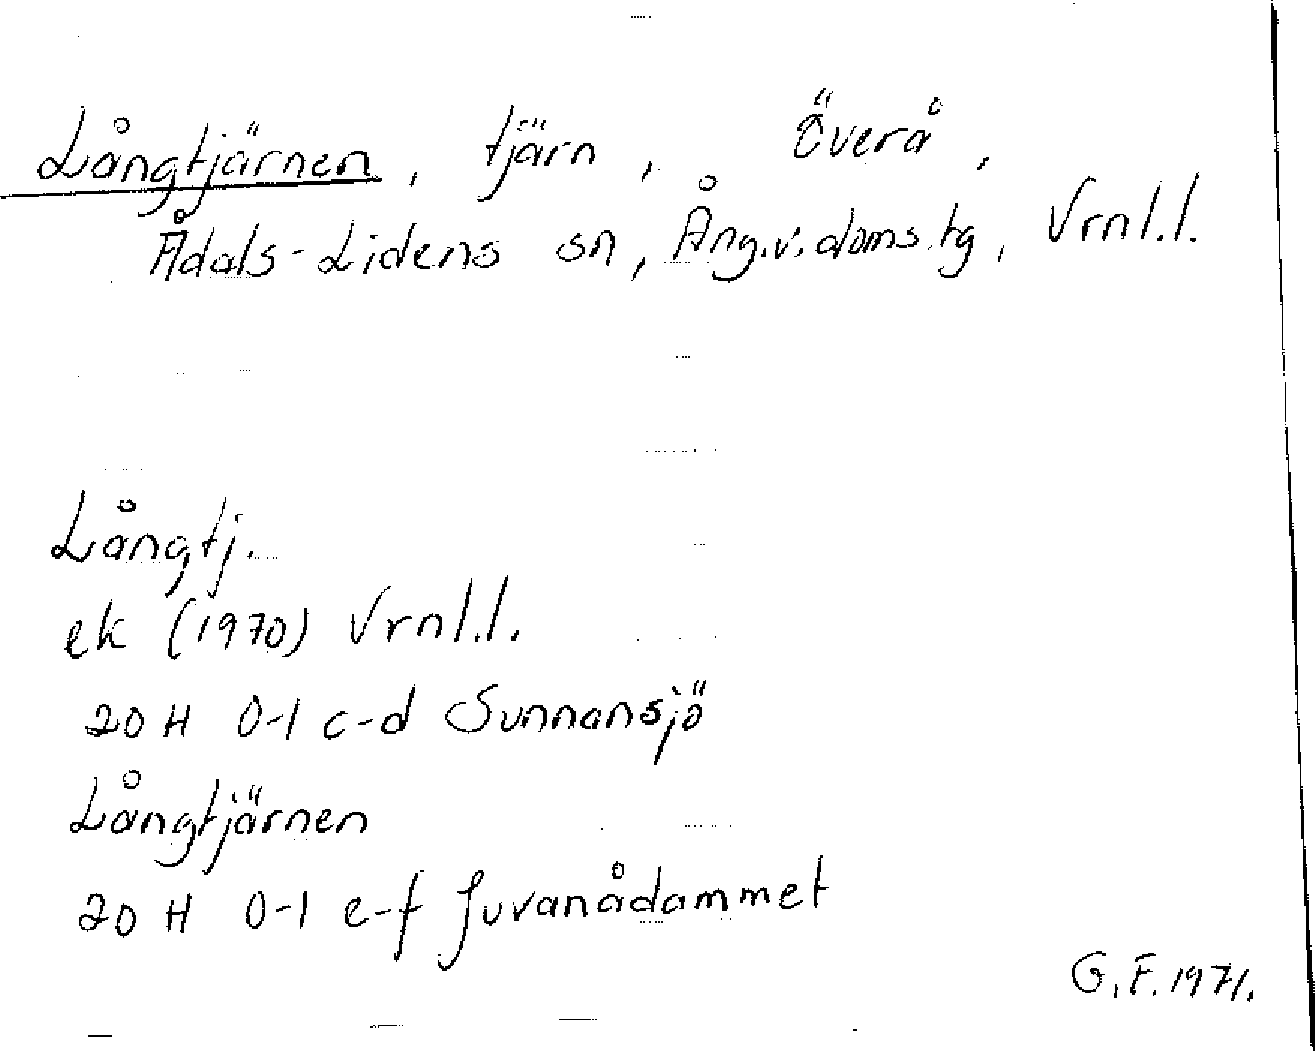 Långtjärnen, tjärn, Överå,
Ådals-Lidens sn, Ång.v.doms.tg, Vrnl.l.
Långtj.
ek (1970) Vrnl.l.
20 H 0-1 c-d Sunnansjö
Långtjärnen
20 H 0-1 e-f Juvanådammet
G.F. 1971.